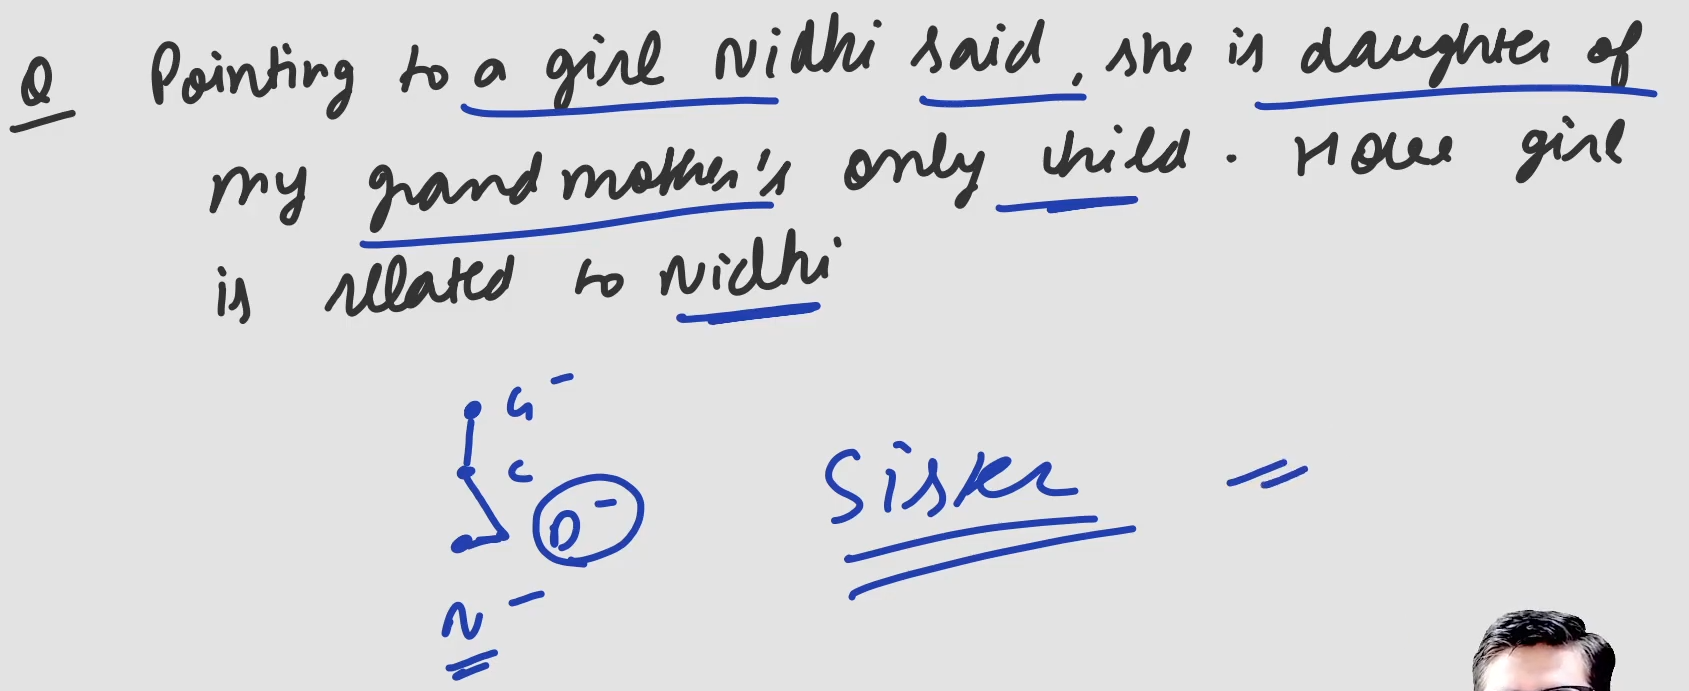 Q Pointing to a girl Nidhi said, she is daughter of
my grandmother's only child. How girl
is related to Nidhi
G -
C
D -
N -
Sister =